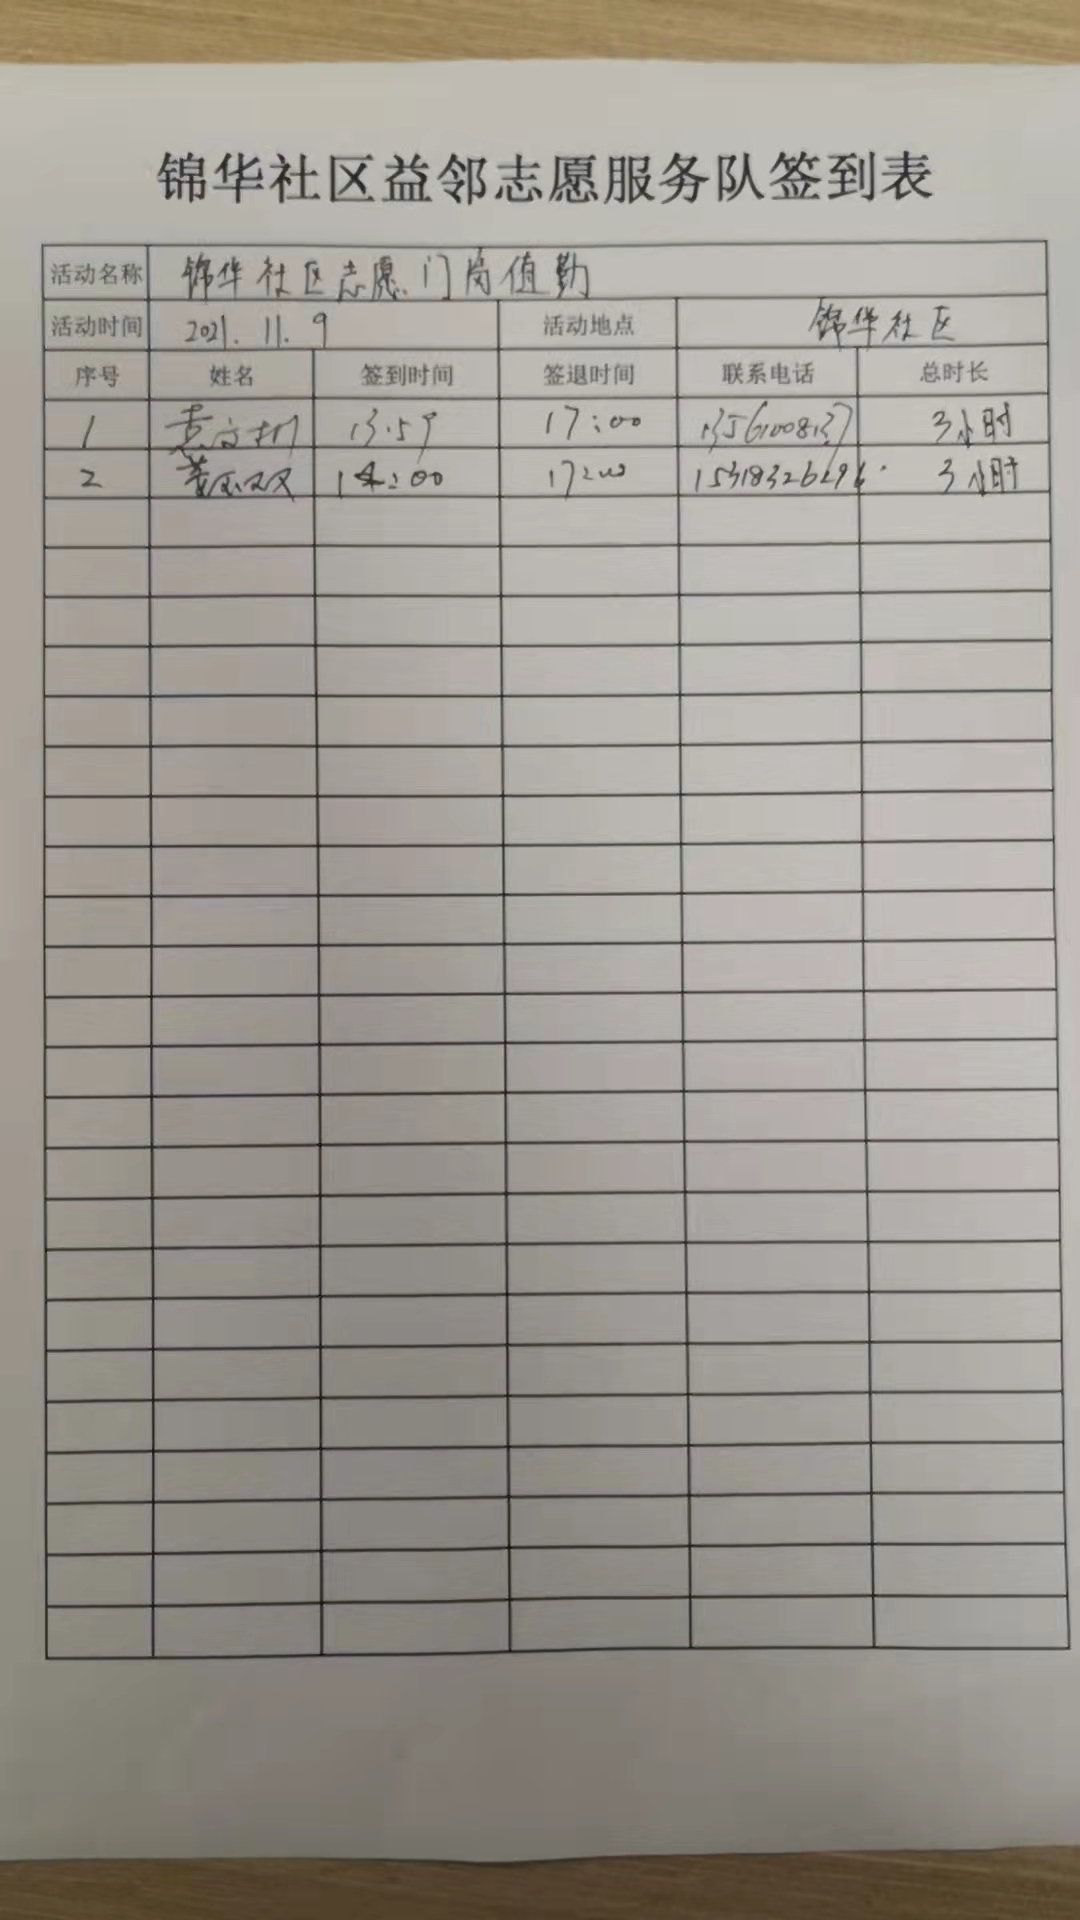 锦华社区益邻志愿服务队签到表
活动名称 锦华社区志愿门岗值勤
活动时间 2021.11.9 活动地点 锦华社区
序号 姓名 签到时间 签退时间 联系电话 总时长
1 13.59 17:00 13561008137 3小时
2 14:00 17:00 15318326296 3小时